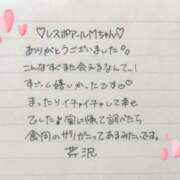 ♡レスポアールMちゃん♡
ありがとうございました♡
こんなすぐまた会えるなんて…!
すごーく嬉しかったです♡
まったりイチャイチャして幸せ
でしたよ家に帰って調べたら
食肉のザリガニってあるみたいです。
芹沢